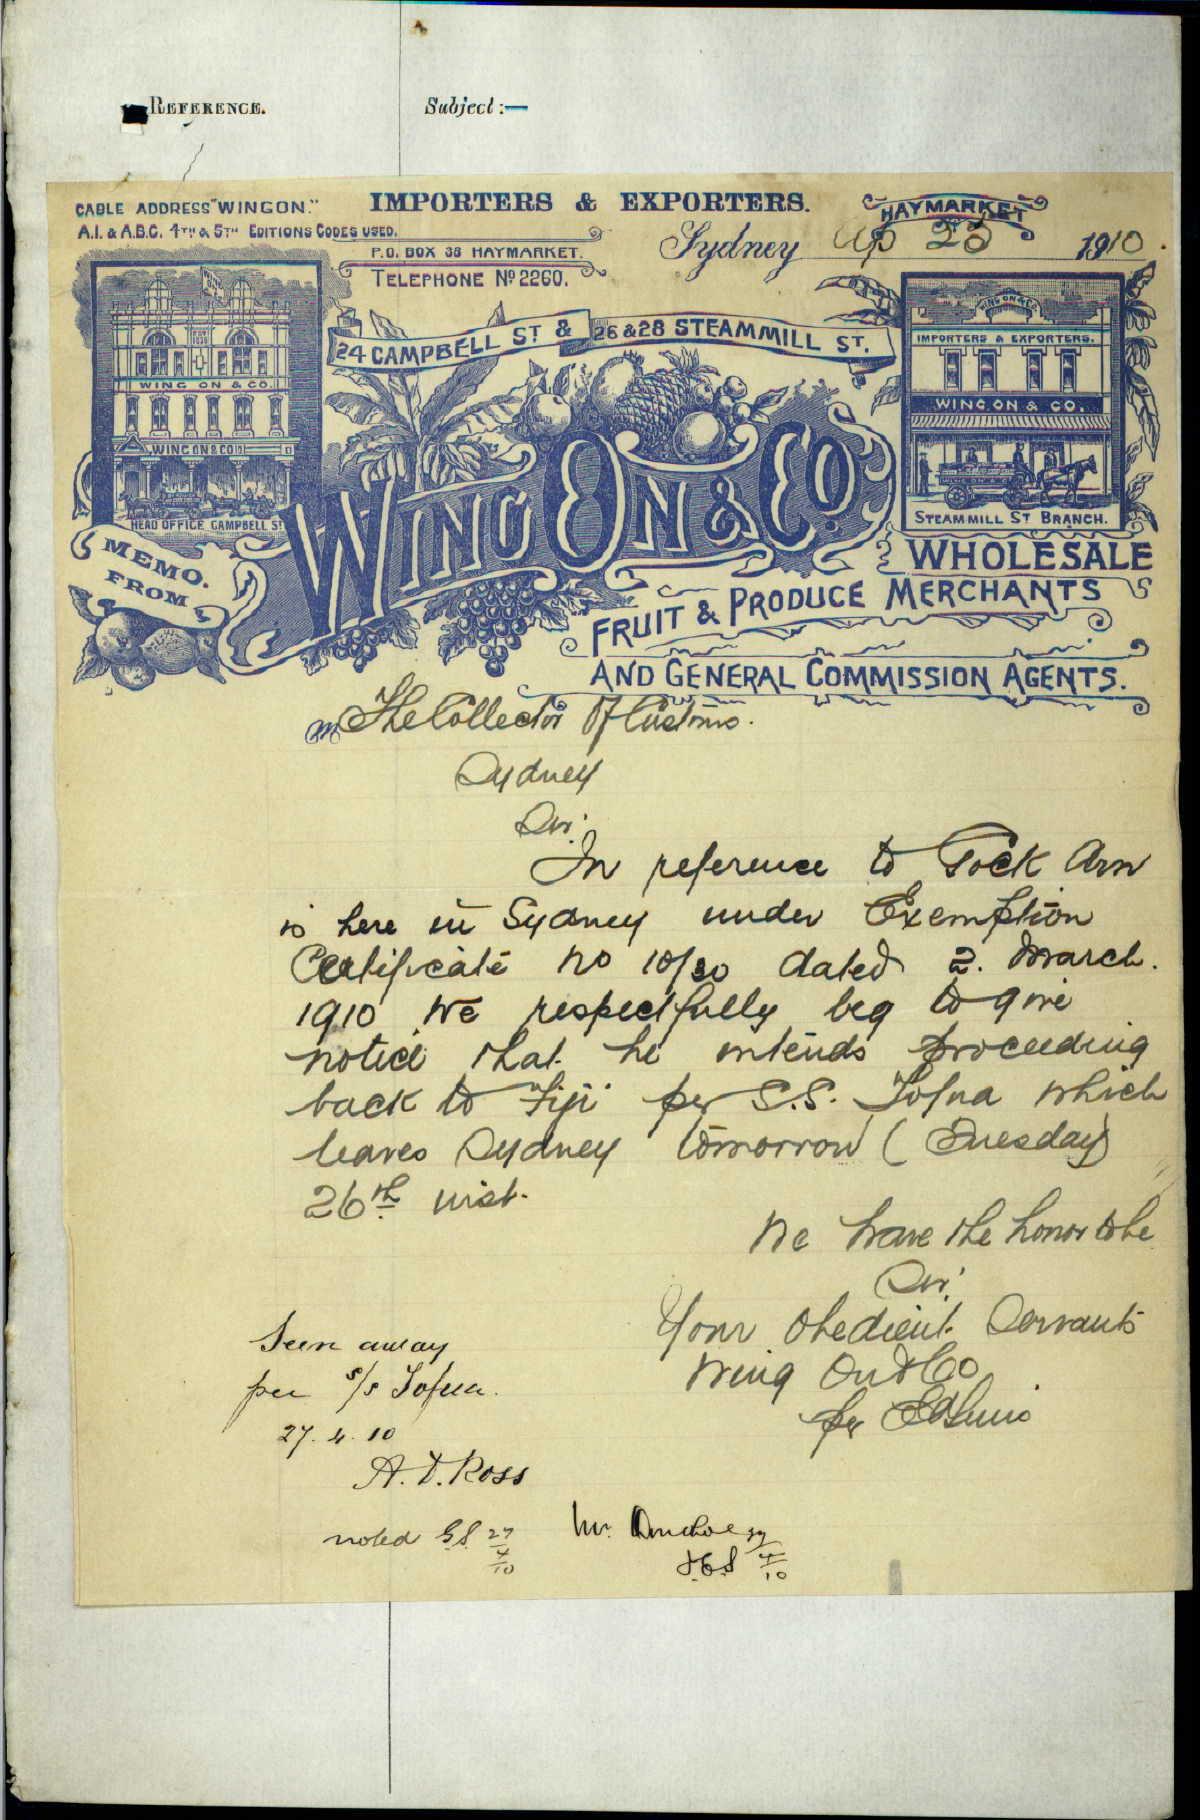 REFERENCE.
Subject:—
CABLE ADDRESS "WINGON."
A.I. & A.B.C. 4TH & 5TH EDITIONS CODES USED.
IMPORTERS & EXPORTERS.
P.O. BOX 38 HAYMARKET.
TELEPHONE No 2260.
HAYMARKET
Sydney Ap 25 1910.
24 CAMPBELL ST & 26 & 28 STEAMMILL ST.
WING ON & CO.
WING ON & CO
HEAD OFFICE CAMPBELL ST
WING ON & CO
IMPORTERS & EXPORTERS.
WING ON & CO.
STEAMMILL ST BRANCH.
MEMO. FROM
WING ON & CO.
WHOLESALE
FRUIT & PRODUCE MERCHANTS
AND GENERAL COMMISSION AGENTS.
M The Collector Of Customs.
Sydney
Sir.
In reference to Tock Arn
is here in Sydney under Exemption
Certificate no 10/30 dated 2. March.
1910 we respectfully beg to give
notice that he intends proceeding
back to Fiji per S.S. Tofua which
leaves Sydney tomorrow (Tuesday)
26th inst.
We have the honor to be
Sir.
Your Obedient Servants
Wing On & Co
per
Seen away
per s/s Tofua.
27. 4. 10
A. D. Ross
noted G.S. 27/4/10
Mr. Donohoe
27/4/10